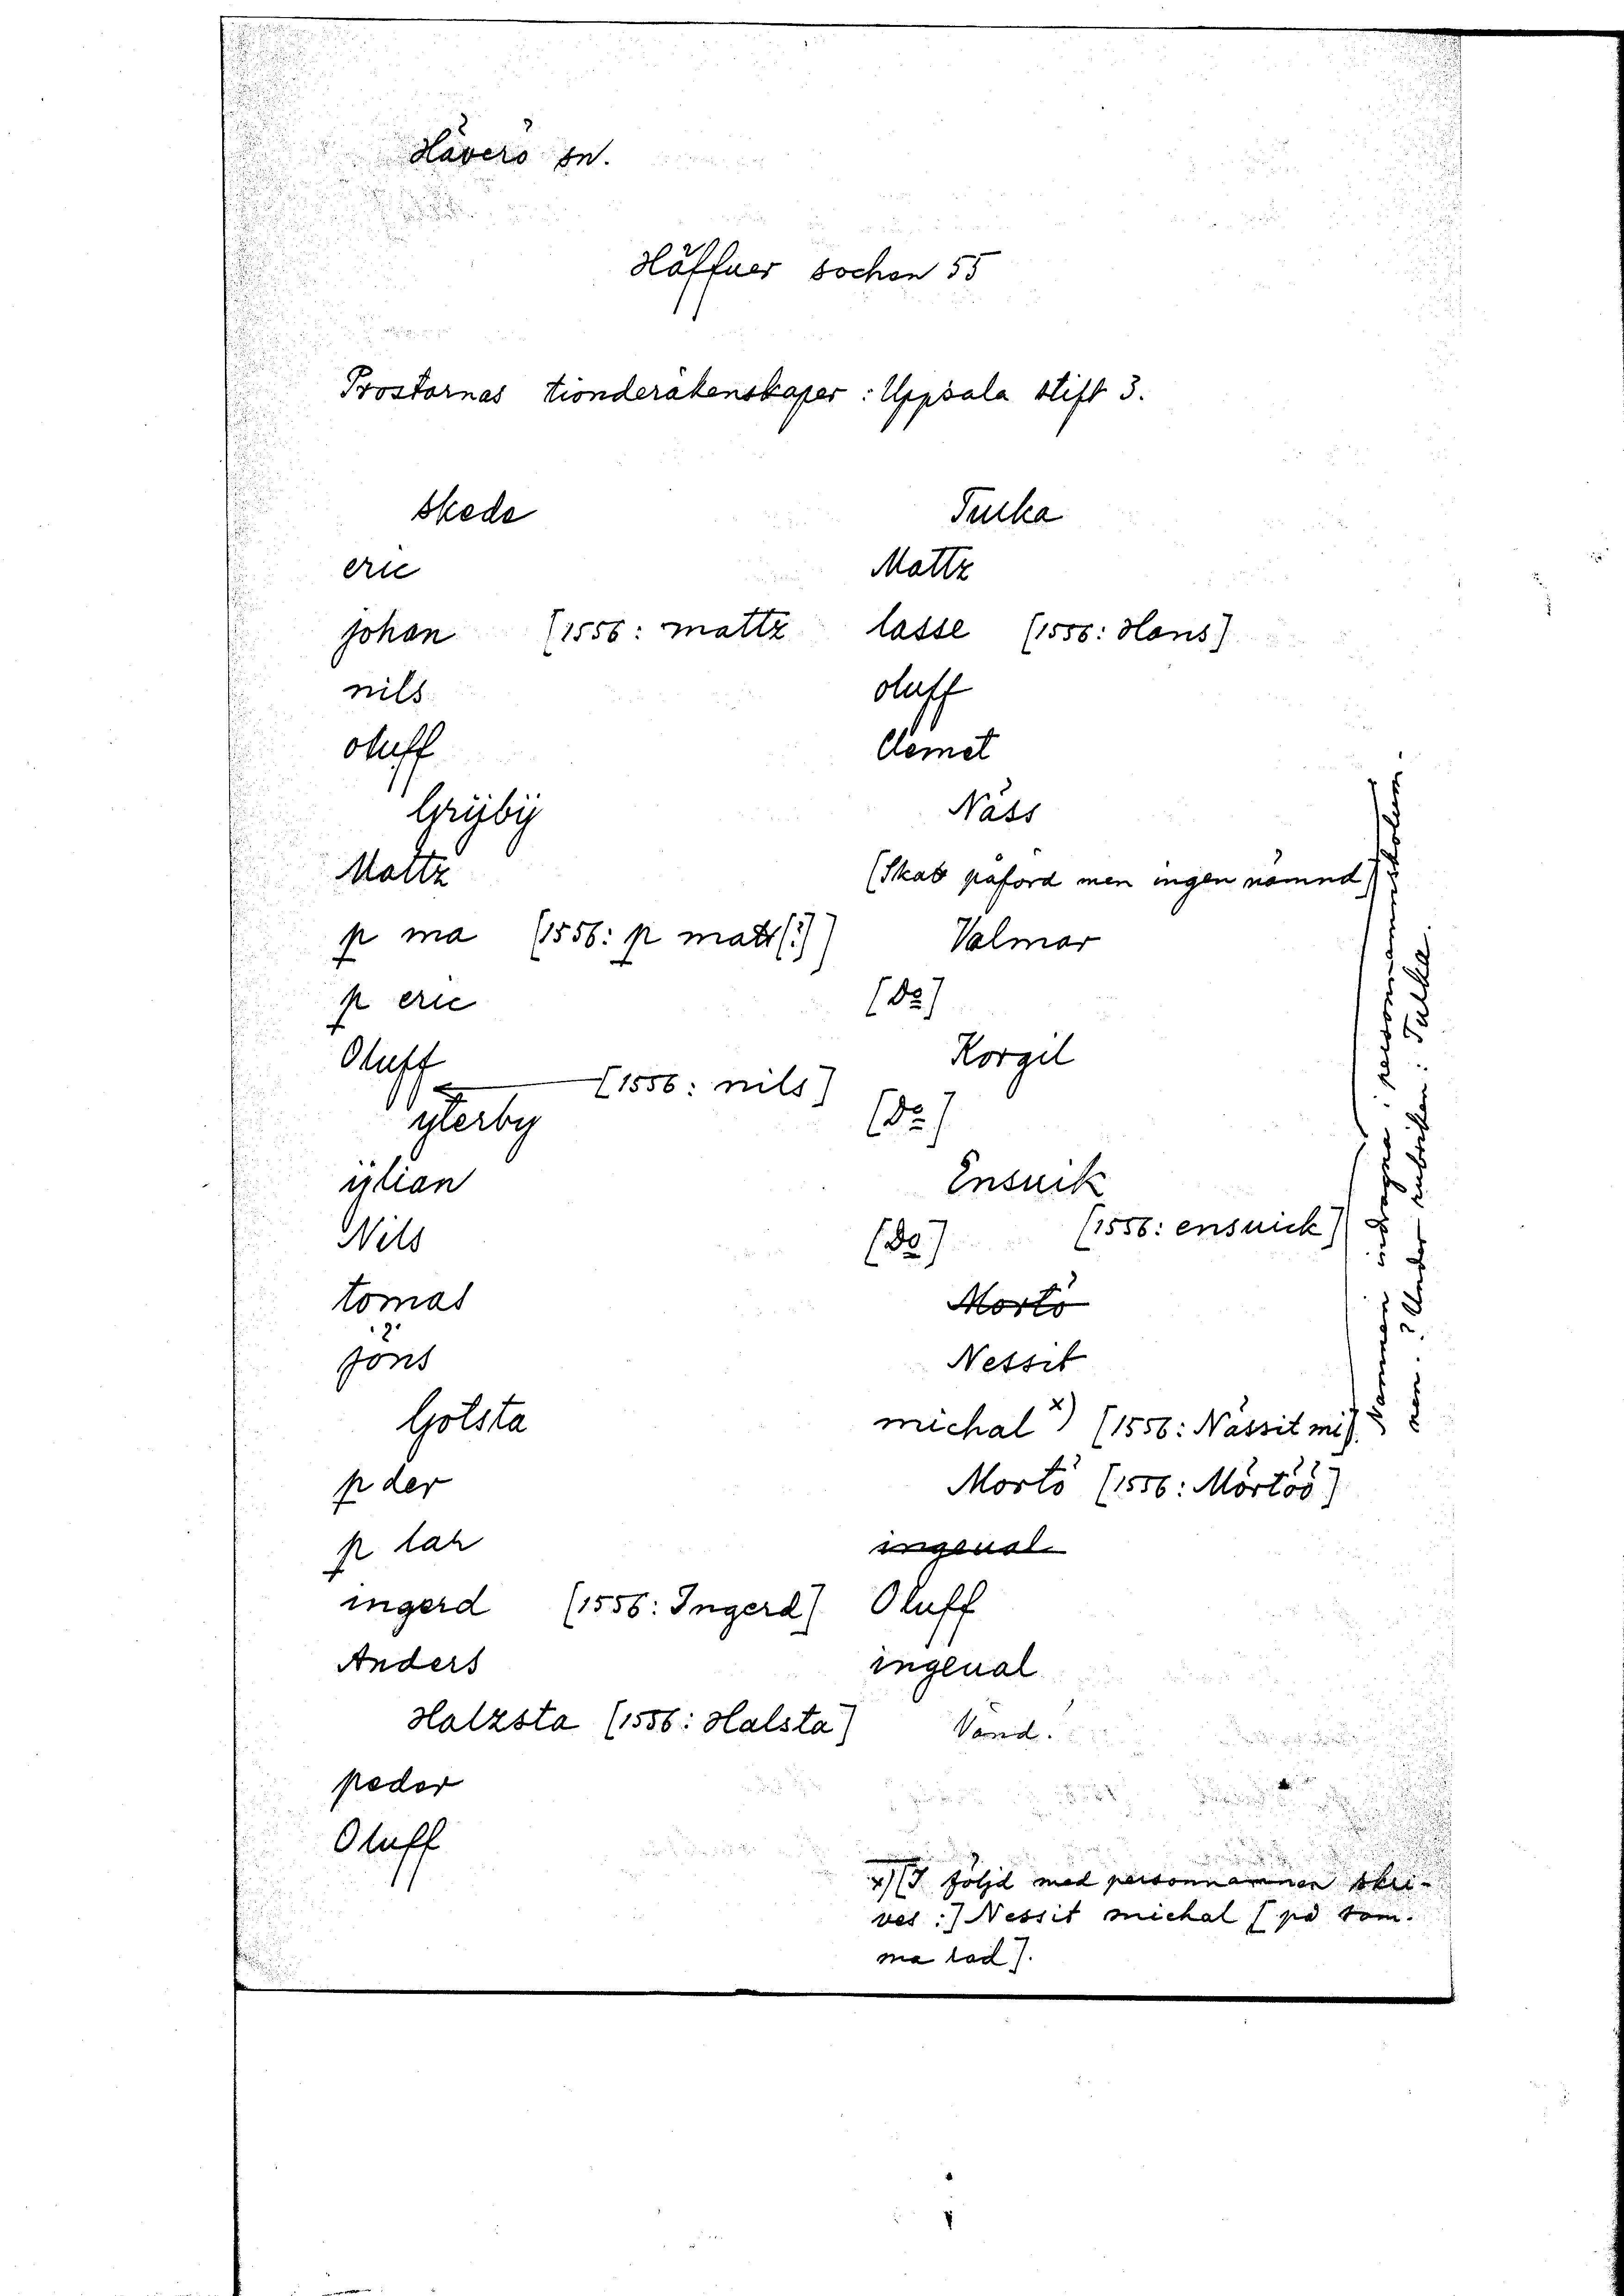 Häverö sn.
Häffuer sochen 55
Prostarnas tionderäkenskaper : Uppsala stift 3.
Skede
eric
johan [1556: mattz
nils
oluff
Grijbij
Mattz
p ma [1556: p matt(?)]
p eric
Oluff
[1556: nils]
ÿterby
ijlian
Nils
tomas
jöns
Golsta
p der
p lar
ingerd [1556: Ingerd]
Anders
Halzsta [1556: Halsta]
peder
Oluff
Tulka
Mattz
lasse [1556: Hans]
oluff
Clemet
Näss
[Skatt påförd men ingen nämnd]
Valmar
[Do]
Korgil
[Do]
Ensuik
[1556: ensuick]
[Do]
Mortö
Nessit
michal x) [1556: Nässit mi].
Mortö [1556: Mörtöö]
ingeual
Oluff
ingeual
Vänd.
x) [I följd med personnamnen skri-
ves :] Nessit michal [på sam-
ma rad].
Namnen indragna i personnamnskolum-
nen. ? Under rubriken: Tulka.